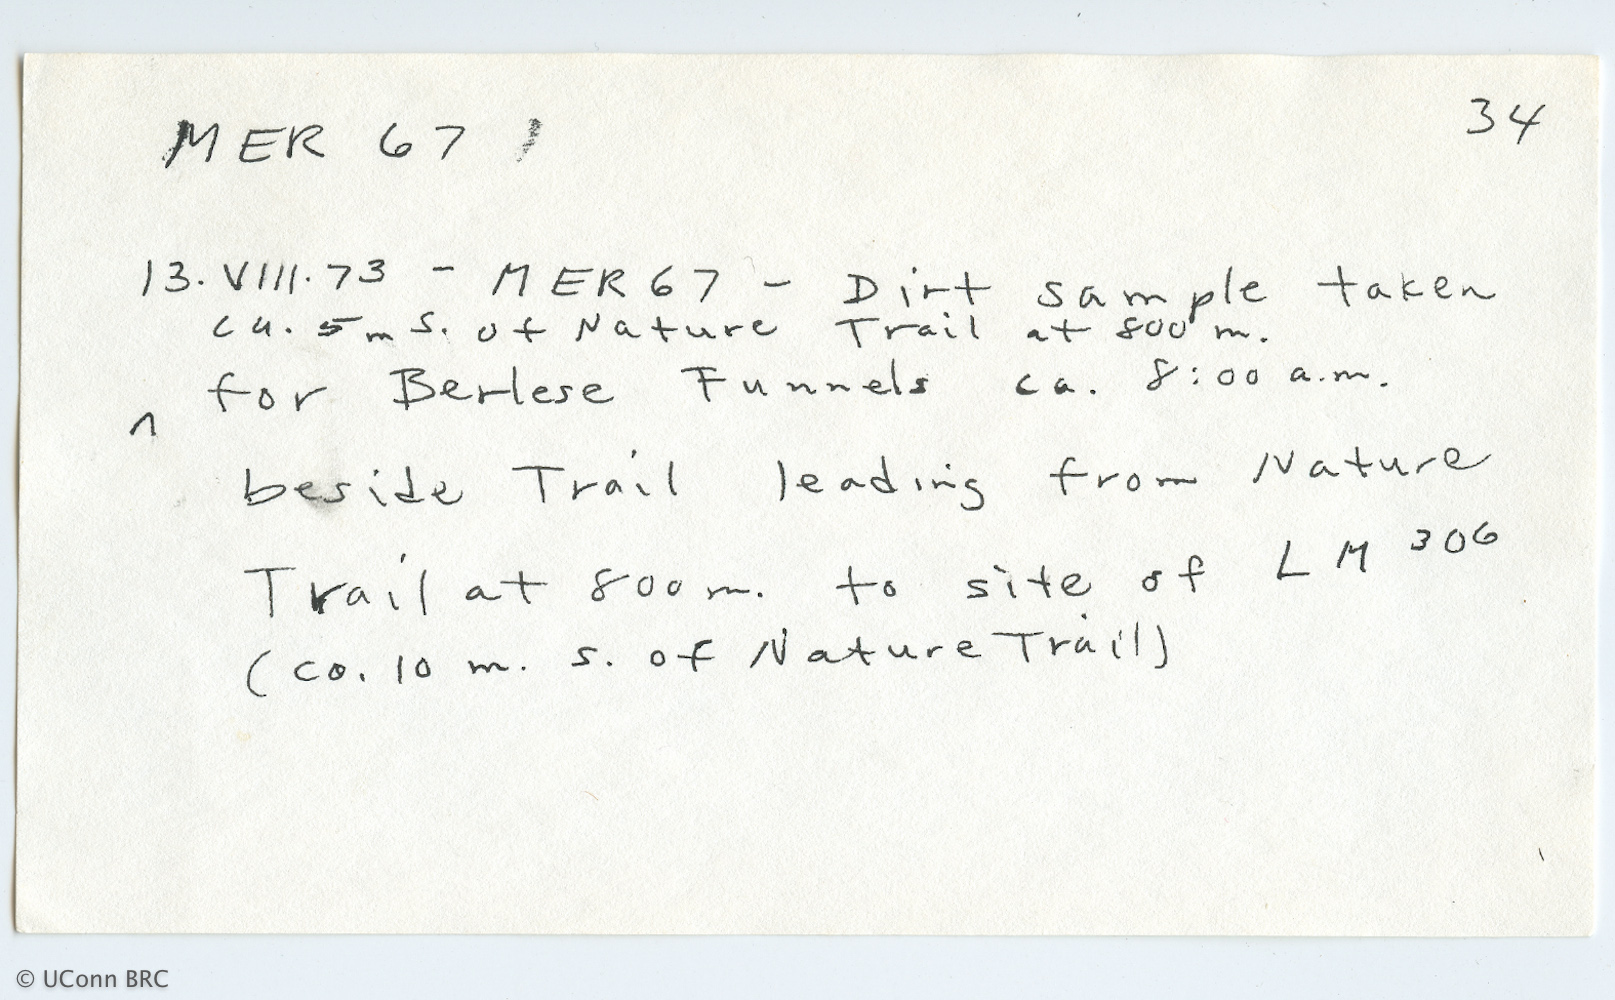 MER 67
34
13.VIII.73 - MER 67 - Dirt sample taken
ca. 5 m S. of Nature Trail at 800 m.
for Berlese Funnels ca. 8:00 a.m.
^
beside Trail leading from Nature
Trail at 800 m. to site of LM 306
(ca. 10 m. s. of Nature Trail)
© UConn BRC